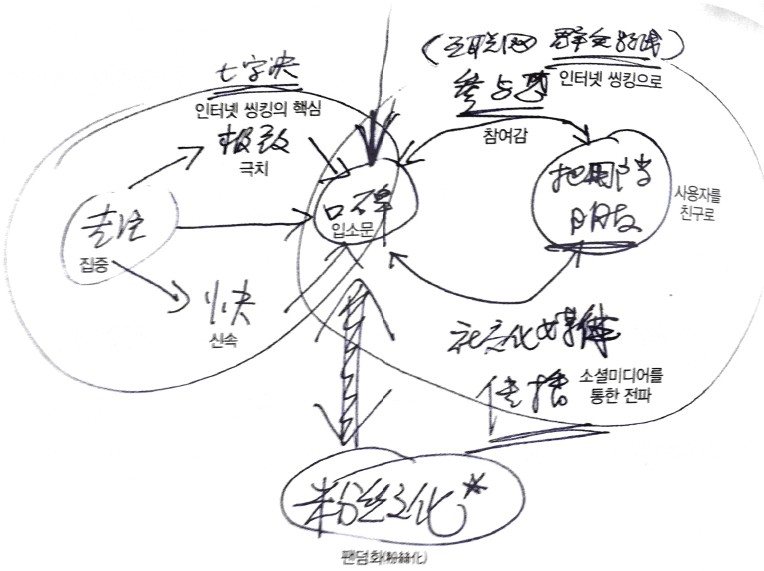 (互联网 群众路线)
七字决
인터넷 씽킹의 핵심
参与感
인터넷 씽킹으로
极致
극치
참여감
把用户当
朋友
사용자를
친구로
口碑
입소문
专注
집중
快
신속
社会化媒体
传播
소셜미디어를
통한 전파
粉丝文化*
팬덤화